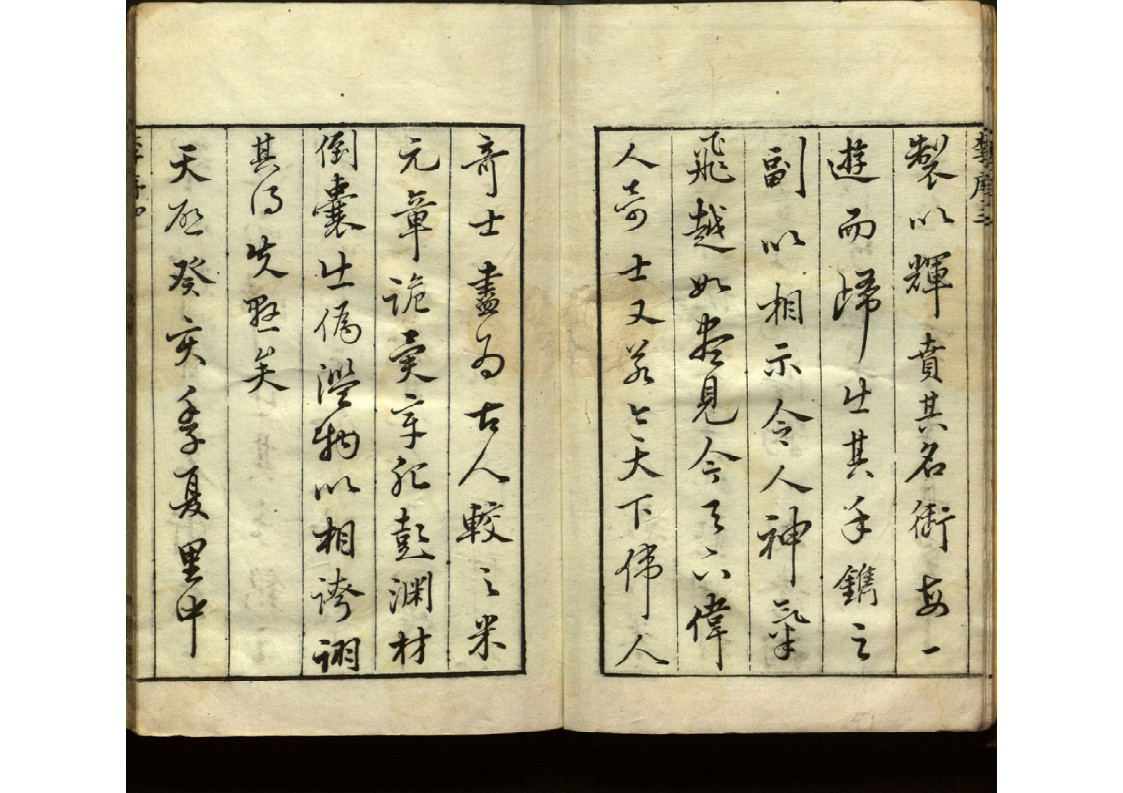 製以輝賁其名銜每一
遊而歸出其手鐫之
副以相示令人神氣
飛越如盡見今天下偉
人奇士又若與天下偉人
奇士盡為古人較之米
元章詭彭淵材
倒囊出偽濫物以相誇詡
其得失懸矣
天啟癸亥季夏里中